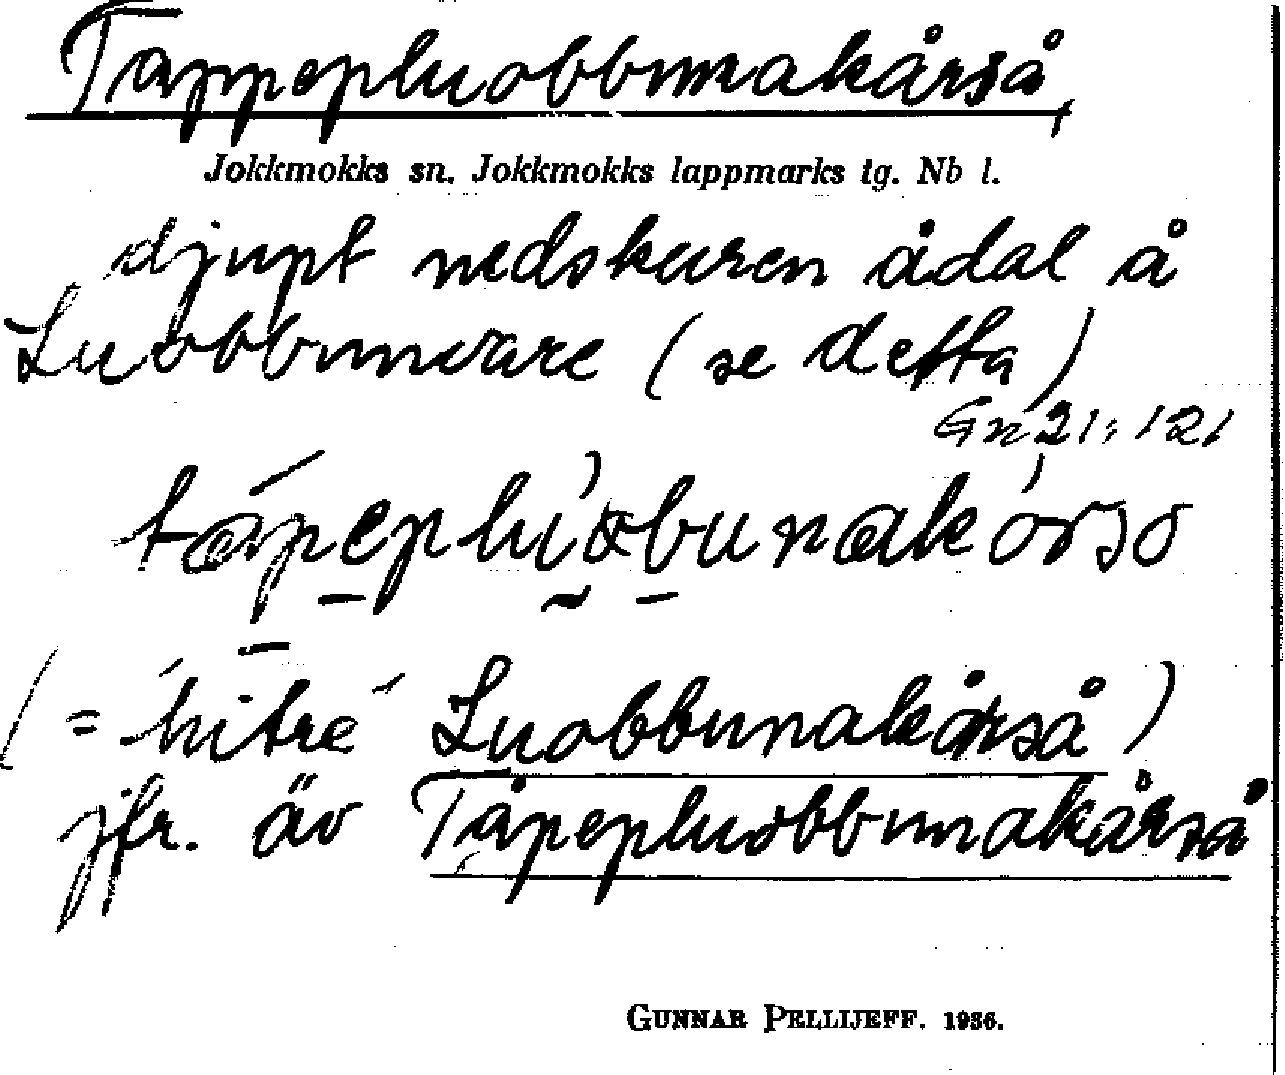 Tappepluobbmakårså,
Jokkmokks sn. Jokkmokks lappmarks tg. Nb l.
djupt nedskuren ådal å
Luobbunvare (se detta)
Gn 21: 121
(= hitre Luobbunakårså)
jfr. äv Tåpepluobbunakårså
GUNNAR PELLIJEFF. 1936.